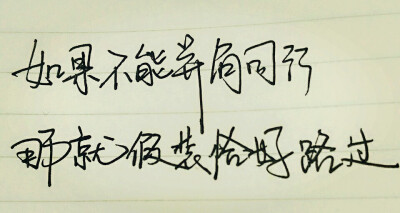 如果不能并肩同行
那就假装恰好路过